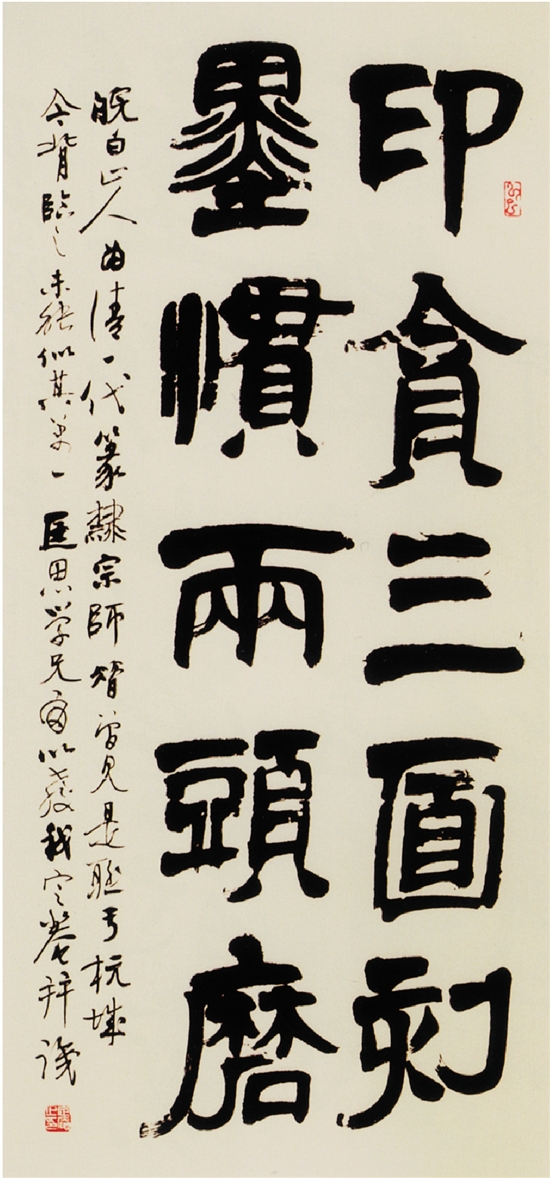 印貪三面刻
墨慣兩頭磨
皖白山人清一代篆隸宗師曾見是聯于杭城
今背臨之未能似其萬一匡思學兄以教我拜識